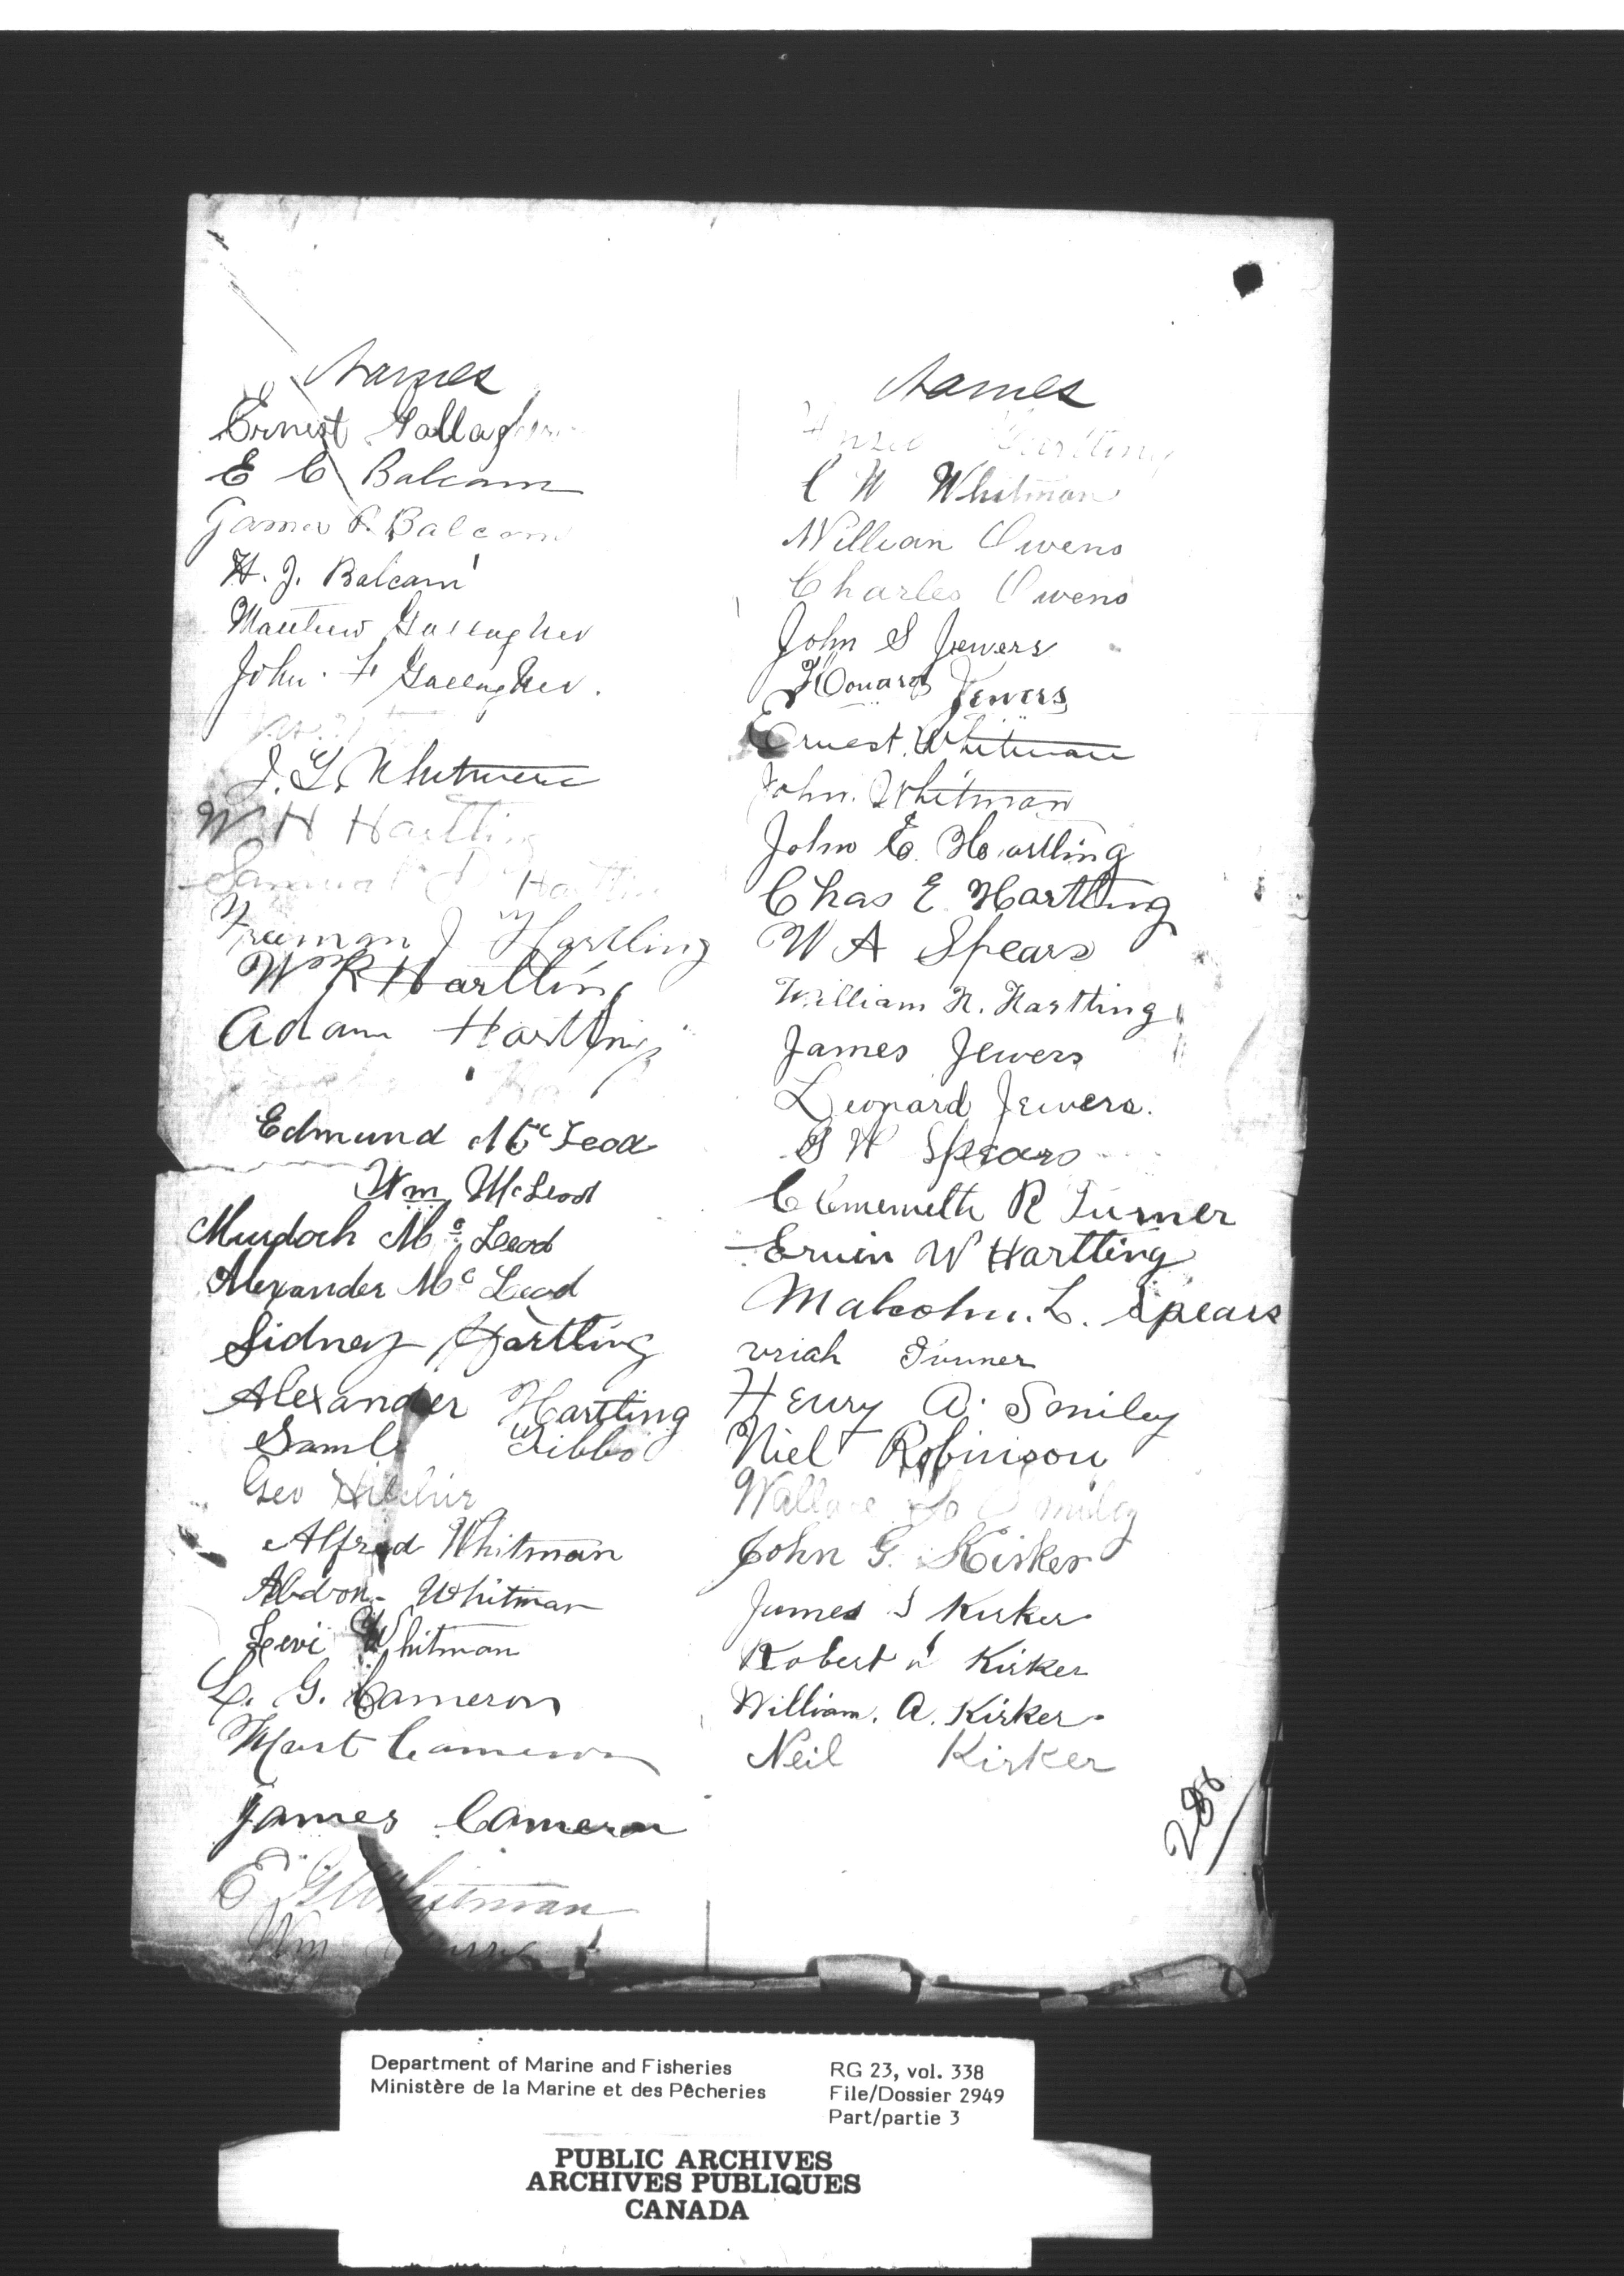 Names
Ernest Gallagher
E C Balcam
H. J. Balcam
Matthew Gallagher
John F Gallagher.
J. G. Whitman
W H Hartling
Samual D Hartlin
Freeman J Hartling
Wm R Hartling
Adam Hartling
Edmund McLeod
Wm McLeod
Murdoch McLeod
Alexander McLeod
Sidney Hartling
Alexander Hartling
Saml Gibbs
Geo
Alfred Whitman
Abdon Whitman
Levi Whitman
L. G. Cameron
Mart Cameron
James Cameron
E G Whitman
Wm
Names
Hartling
C W Whitman
William Owens
Charles Owens
John S Jewers
Howard Jewers
Ernest Whitman
John. Whitman
John E. Hartling
Chas E Hartling
W A Spears
William H. Hartling
James Jewers
Leonard Jewers.
G W Spears
R Turner
Ervin W Hartling
Malcolm. L. Spears
uriah Turner
Henry A. Smiley
Niel Robinson
Wallace Smiley
John G. Kirker
James J Kirker
Robert Kirker
William. A. Kirker
Neil Kirker
286
Department of Marine and Fisheries
Ministère de la Marine et des Pêcheries
RG 23, vol. 338
File/Dossier 2949
Part/partie 3
PUBLIC ARCHIVES
ARCHIVES PUBLIQUES
CANADA